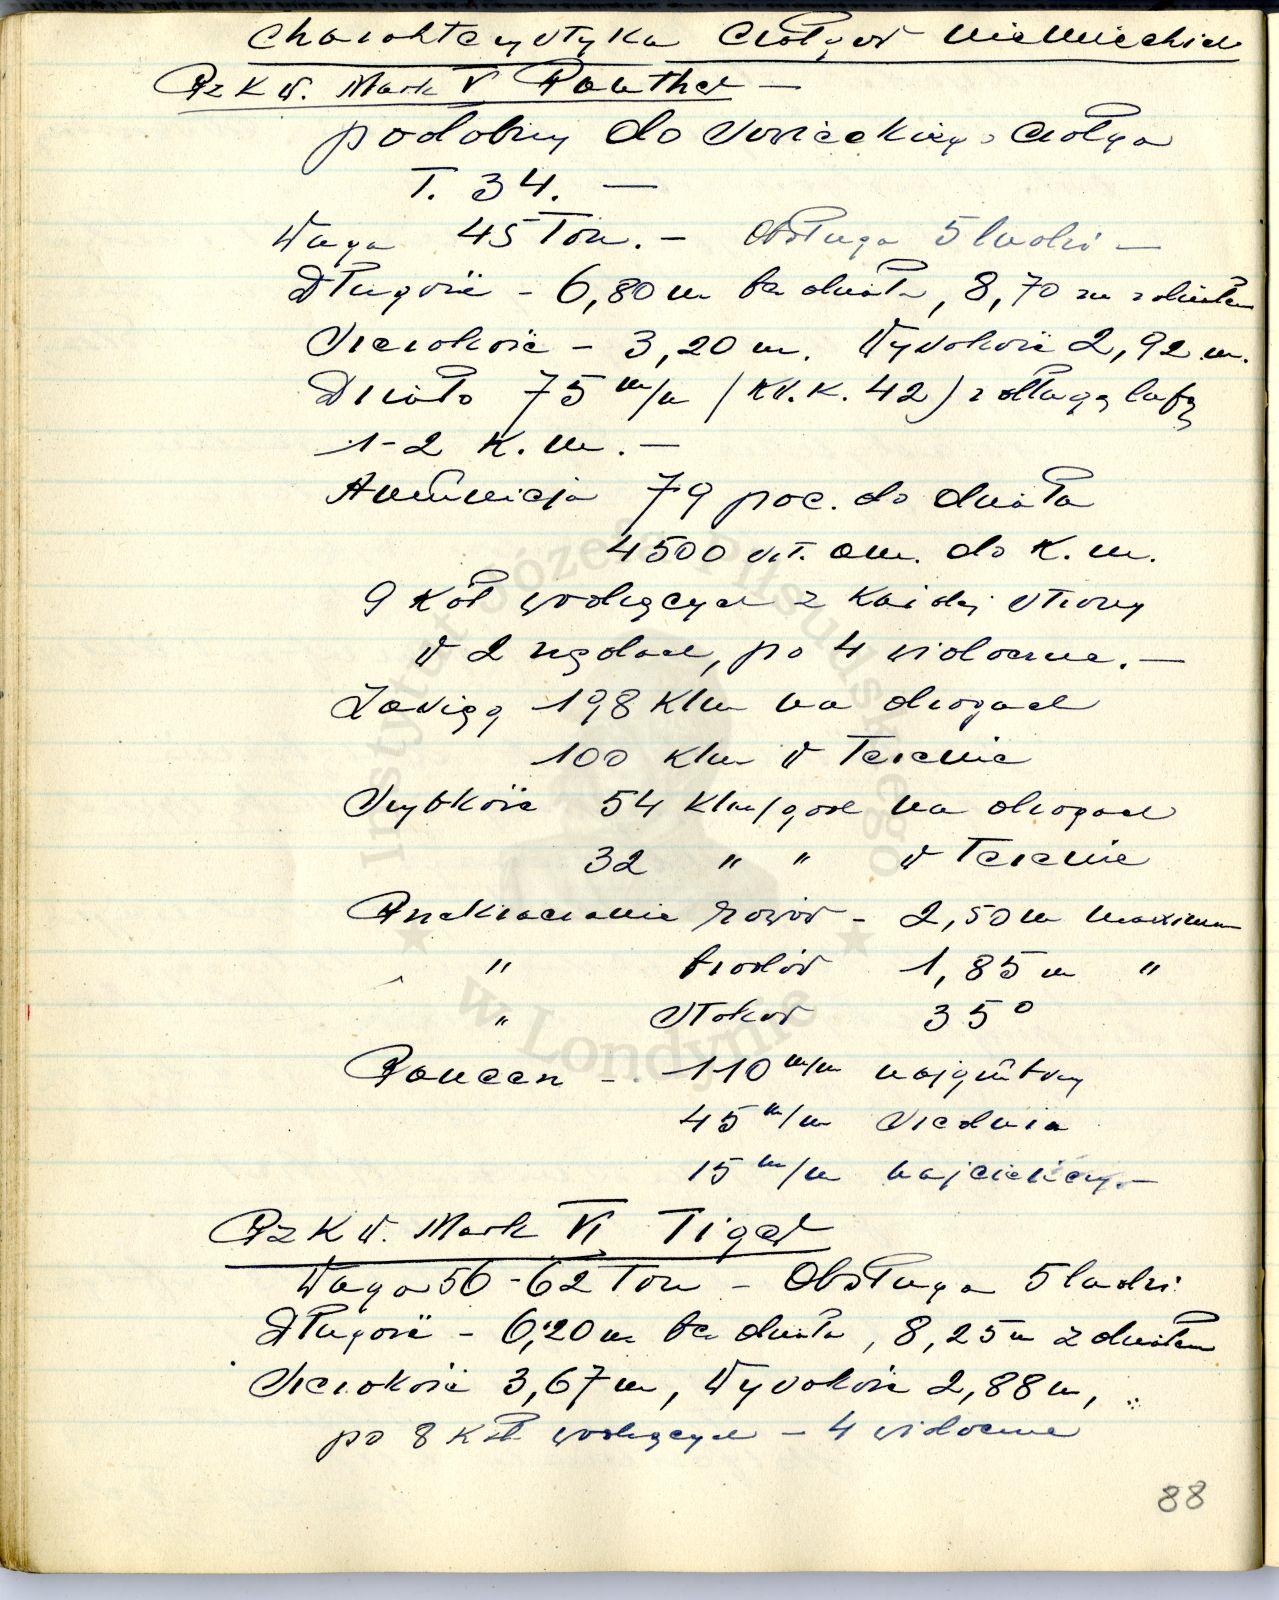 Charakterystyka czołgów niemieckich
Pz K W. Mark V Panther —
podobny do sowieckiego czołga
T. 34. —
Waga 45 Ton. — Obsługa 5 ludzi —
Długość - 6,80 m bez działa, 8,70 m z działem
Szerokość - 3,20 m. Wysokość 2,92 m.
Działo 75 m/m (KW.K. 42) z długą lufą
1-2 K.m. —
Amunicja 79 poc. do działa
4500 szt. am. do K.m.
9 kół wodzących z każdej strony
w 2 rzędach, po 4 widoczne. —
Zasięg 198 klm na drogach
100 klm w terenie
Szybkość 54 klm/godz na drogach
32 " " w terenie
Przekraczanie rowów - 2,50 m maximum
" brodów 1,85 m "
" stoków 35°
Pancerz - 110 m/m najgrubszy
45 m/m średnia
15 m/m
Pz K W. Mark VI Tiger
Waga 56-62 Ton - Obsługa 5 ludzi
Długość - 6,20 m bez działa, 8,25 m z działem
Szerokość 3,67 m, Wysokość 2,88 m,
po 8 kół wodzących - 4 widoczne
88
Instytut Józefa Piłsudskiego
w Londynie